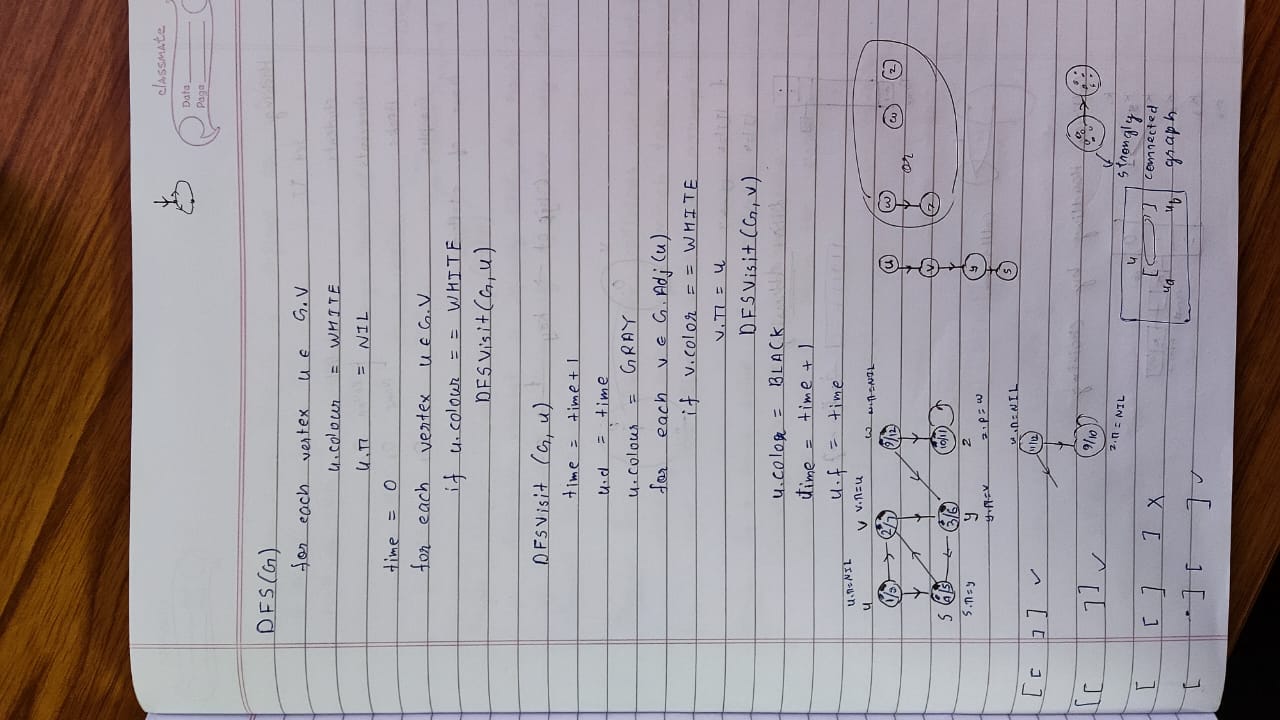 classmate
Date
Page
DFS(G)
for each vertex u ∈ G.V
u.colour = WHITE
u.π = NIL
time = 0
for each vertex u ∈ G.V
if u.colour == WHITE
DFSVisit(G,u)
DFSVisit (G, u)
time = time+1
u.d = time
u.colour = GRAY
for each v ∈ G.Adj(u)
if v.color == WHITE
v.π = u
DFSVisit(G,v)
u.color = BLACK
time = time + 1
u.f = time
u.π=NIL v.π=u w.π=NIL
u v w
2/7 9/12
3/6 10/11
s y z
s.π=y y.π=v z.p=w
u w w z
v or z
y
s
w.π=NIL
11/12
9/10
z.π=NIL
[ [ ] ] ✓
[ [ ] ] ✓
[ ] [ ] X
[ ] [ ] ✓
u
[ ]
strongly
connected
graph